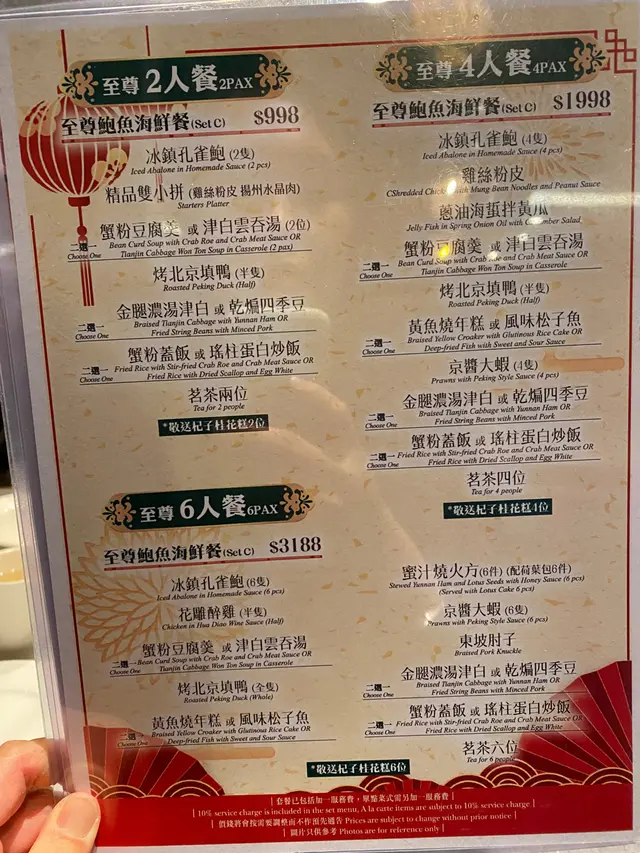 至尊 2人餐 2PAX
至尊鮑魚海鮮餐(Set C) $998
冰鎮孔雀鮑 (2隻)
Iced Abalone in Homemade Sauce (2 pcs)
精品雙小拼 (雞絲粉皮 揚州水晶肉)
Starters Platter
蟹粉豆腐羹 或 津白雲吞湯 (2位)
二選一 Choose One
Bean Curd Soup with Crab Roe and Crab Meat Sauce OR
Tianjin Cabbage Won Ton Soup in Casserole (2 pax)
烤北京填鴨 (半隻)
Roasted Peking Duck (Half)
金腿濃湯津白 或 乾煸四季豆
二選一 Choose One
Braised Tianjin Cabbage with Yunnan Ham OR
Fried String Beans with Minced Pork
蟹粉蓋飯 或 瑤柱蛋白炒飯
二選一 Choose One
Fried Rice with Stir-fried Crab Roe and Crab Meat Sauce OR
Fried Rice with Dried Scallop and Egg White
茗茶兩位
Tea for 2 people
*敬送杞子桂花糕2位
至尊 4人餐 4PAX
至尊鮑魚海鮮餐(Set C) $1998
冰鎮孔雀鮑 (4隻)
Iced Abalone in Homemade Sauce (4 pcs)
雞絲粉皮
CShredded Chicken with Mung Bean Noodles and Peanut Sauce
蔥油海蜇拌黃瓜
Jelly Fish in Spring Onion Oil with Cucumber Salad
蟹粉豆腐羹 或 津白雲吞湯
二選一 Choose One
Bean Curd Soup with Crab Roe and Crab Meat Sauce OR
Tianjin Cabbage Won Ton Soup in Casserole
烤北京填鴨 (半隻)
Roasted Peking Duck (Half)
黃魚燒年糕 或 風味松子魚
二選一 Choose One
Braised Yellow Croaker with Glutinous Rice Cake OR
Deep-fried Fish with Sweet and Sour Sauce
京醬大蝦 (4隻)
Prawns with Peking Style Sauce (4 pcs)
金腿濃湯津白 或 乾煸四季豆
二選一 Choose One
Braised Tianjin Cabbage with Yunnan Ham OR
Fried String Beans with Minced Pork
蟹粉蓋飯 或 瑤柱蛋白炒飯
二選一 Choose One
Fried Rice with Stir-fried Crab Roe and Crab Meat Sauce OR
Fried Rice with Dried Scallop and Egg White
茗茶四位
Tea for 4 people
*敬送杞子桂花糕4位
至尊 6人餐 6PAX
至尊鮑魚海鮮餐(Set C) $3188
冰鎮孔雀鮑 (6隻)
Iced Abalone in Homemade Sauce (6 pcs)
花雕醉雞 (半隻)
Chicken in Hua Diao Wine Sauce (Half)
蟹粉豆腐羹 或 津白雲吞湯
二選一 Choose One
Bean Curd Soup with Crab Roe and Crab Meat Sauce OR
Tianjin Cabbage Won Ton Soup in Casserole
烤北京填鴨 (全隻)
Roasted Peking Duck (Whole)
黃魚燒年糕 或 風味松子魚
二選一 Choose One
Braised Yellow Croaker with Glutinous Rice Cake OR
Deep-fried Fish with Sweet and Sour Sauce
蜜汁燒火方(6件) (配荷葉包6件)
Stewed Yunnan Ham and Lotus Seeds with Honey Sauce (6 pcs)
(Served with Lotus Cake 6 pcs)
京醬大蝦 (6隻)
Prawns with Peking Style Sauce (6 pcs)
東坡肘子
Braised Pork Knuckle
金腿濃湯津白 或 乾煸四季豆
二選一 Choose One
Braised Tianjin Cabbage with Yunnan Ham OR
Fried String Beans with Minced Pork
蟹粉蓋飯 或 瑤柱蛋白炒飯
二選一 Choose One
Fried Rice with Stir-fried Crab Roe and Crab Meat Sauce OR
Fried Rice with Dried Scallop and Egg White
茗茶六位
Tea for 6 people
*敬送杞子桂花糕6位
| 套餐已包括加一服務費，單點菜式需另加一服務費 |
| 10% service charge is included in the set menu, A la carte items are subject to 10% service charge |
| 價錢將會按需要調整而不作預先通告 Prices are subject to change without prior notice |
| 圖片只供參考 Photos are for reference only |